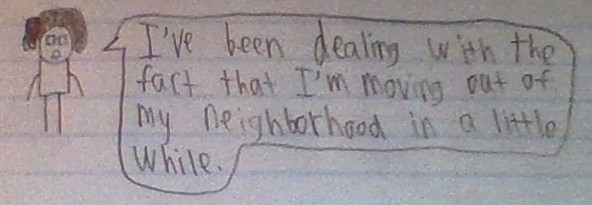 I've been dealing with the
fact that I'm moving out of
my neighborhood in a little
while.